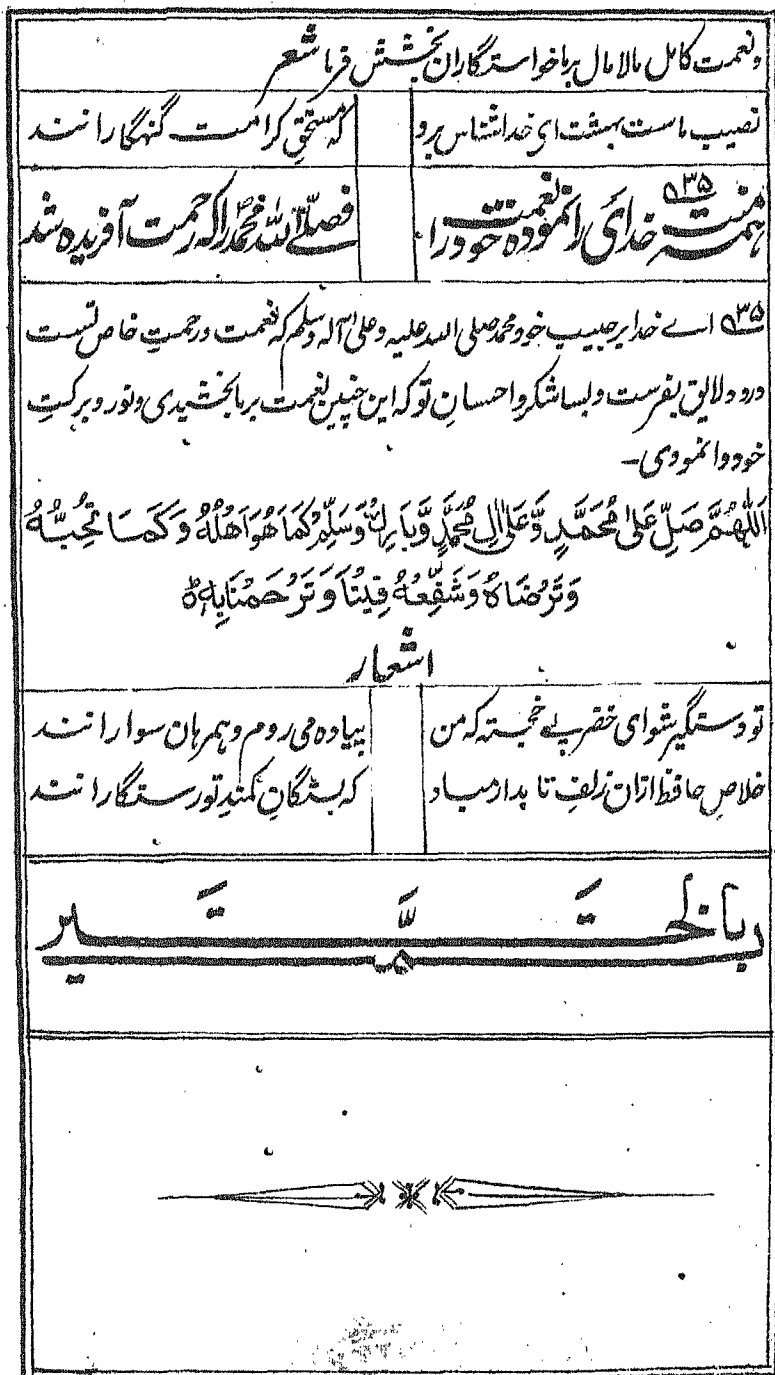 و نعمت کامل مالامال بر ما خواستگاران بخشش فرما شعر
نصیب ماست بهشت ای خدا شناس برو که مستحقِ کرامت گنهگارانند
۹۳۵
همه منت خدای را نموده نعمت خود را فصلّے اللہ محمدؐ را که رحمت آفریده شد
۹۳۵ اے خدا بر حبیب خود محمد صلی الله علیه و علی آله وسلم که نعمت و رحمتِ خاص تست
درود لایق بفرست و بسا شکر و احسانِ تو که این چنین نعمت بر ما بخشیدی و نور و برکتِ
خود وانمودی ـ
اَللّٰهُمَّ صَلِّ عَلىٰ مُحَمَّدٍ وَّعَلىٰ اٰلِ مُحَمَّدٍ وَّبَارِكْ وَسَلِّمْ كَمَا هُوَ اَهْلُهٗ وَكَمَا تُحِبُّهٗ
وَتَرْضَاهُ وَشَفِّعْهُ فِيْنَا وَتَرْحَمْنَا بِهٖ ۞
اشعار
تو دستگیر شو ای خضر پئے خجسته که من پیاده می روم و همرهان سوارانند
خلاصِ حافظ ازان زلفِ تابدار مباد که بستگانِ کمندِ تو رستگارانند
تمّت بالخیر